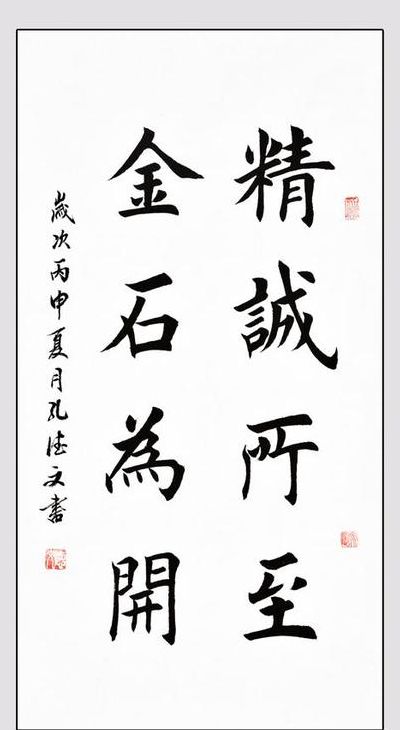 精誠所至
金石為開
歲次丙申夏月孔德文書